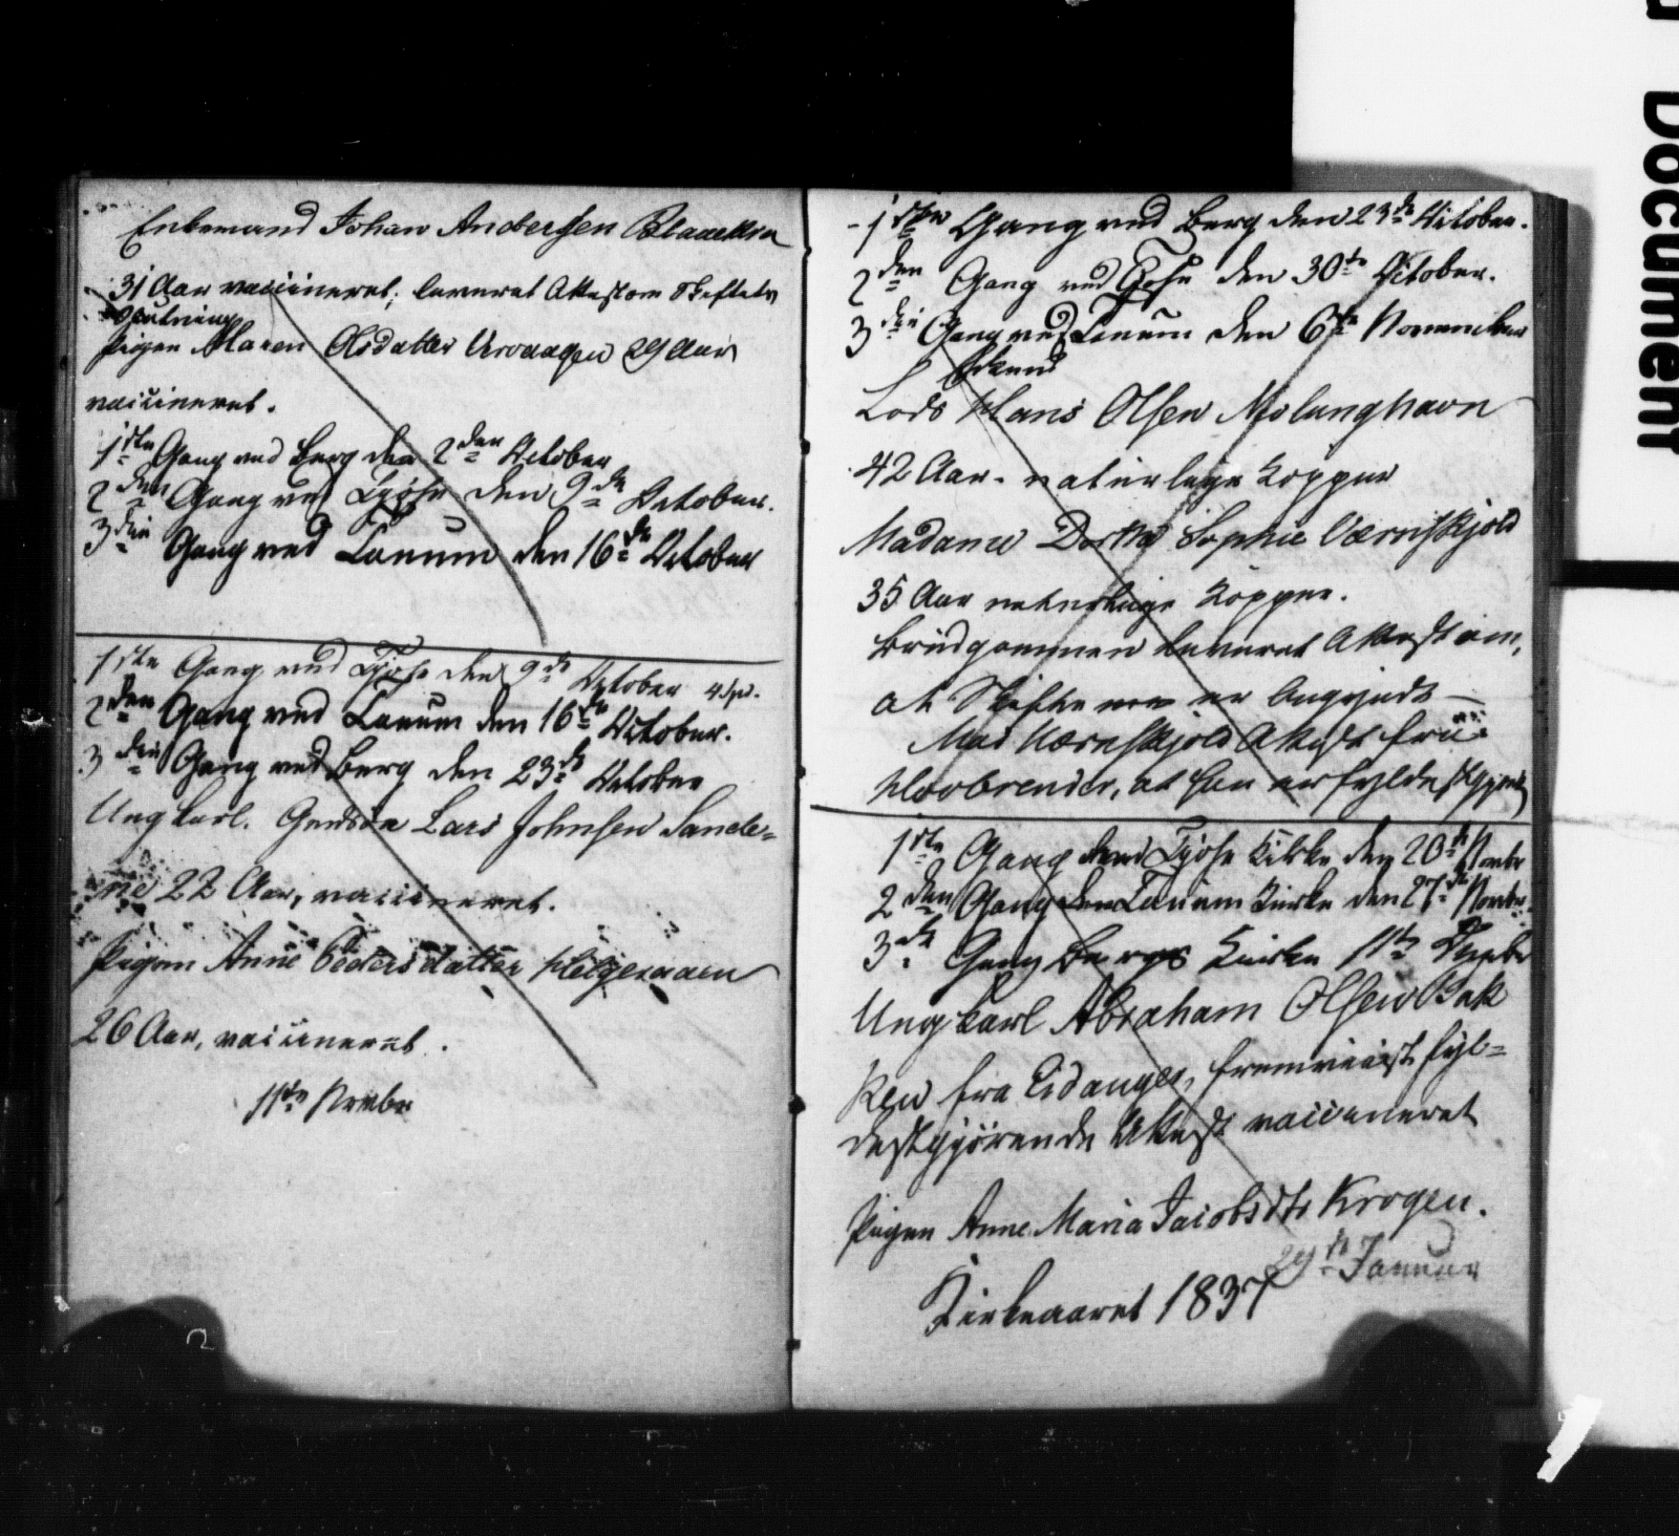 Enkemand Johan Andersen
31 Aar vaccineret; leveret Attest om Skiftets
Slutning
Pigen Maren Olsdatter 29 Aar
vaccineret.
1ste Gang ved Berg den 2den October
2den Gang ved Tjøse den 9de October.
3die Gang ved Tanum den 16de October
1ste Gang ved Tjøse den 9de October
2den Gang ved Tanum den 16de October.
3die Gang ved Berg den 23de October
Ungkarl. Lars Johnsen Sande=
ne 22 Aar, vaccineret.
Pigen Anne Pedersdatter
26 Aar, vaccineret.
11te Novbr
1ste Gang ved Berg den 23de October.
2den Gang ved Tjøse den 30te October.
3die Gang ved Tanum den 6te November
Enkemd
Lods Hans Olsen
42 Aar. naturlige Kopper
Madame Dorthe Sophie Værnskjold
35 Aar naturlige Kopper.
Brudgommen leveret Attest om,
at Skifte er begyndt
Mad Værnskjold Attest fra
at hun er fyldestgjort
1ste Gang Tjøse Kirke den 20de Novbr
2den Gang Tanum Kirke den 27de Novbr.
3de Gang Bergs Kirke 11te Decbr
Ungkarl Abraham Olsen Bak
ken fra Eidanger, fremviist fyl=
destgjørende Attest vaccineret
Pigen Anne Maria Jacobsdtr Krogen.
29de Januar
Kirkeaaret 1837
Document